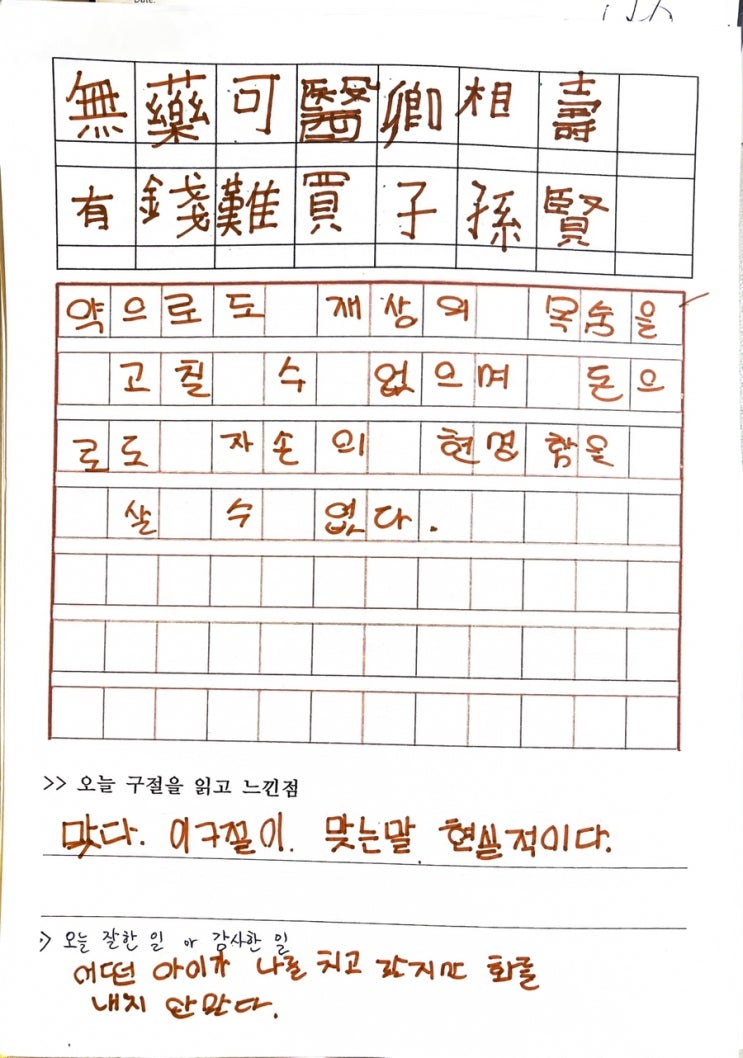 Date.
無藥可醫卿相壽
有錢難買子孫賢
약으로도 재상의 목숨을
고칠 수 없으며 돈으
로도 자손의 현명함을
살 수 없다.
>> 오늘 구절을 읽고 느낀점
맞다. 이구절이. 맞는말 현실적이다.
오늘 잘한 일 or 감사한 일
어떤 아이가 나를 치고 갔지만 화를
내지 안았다.